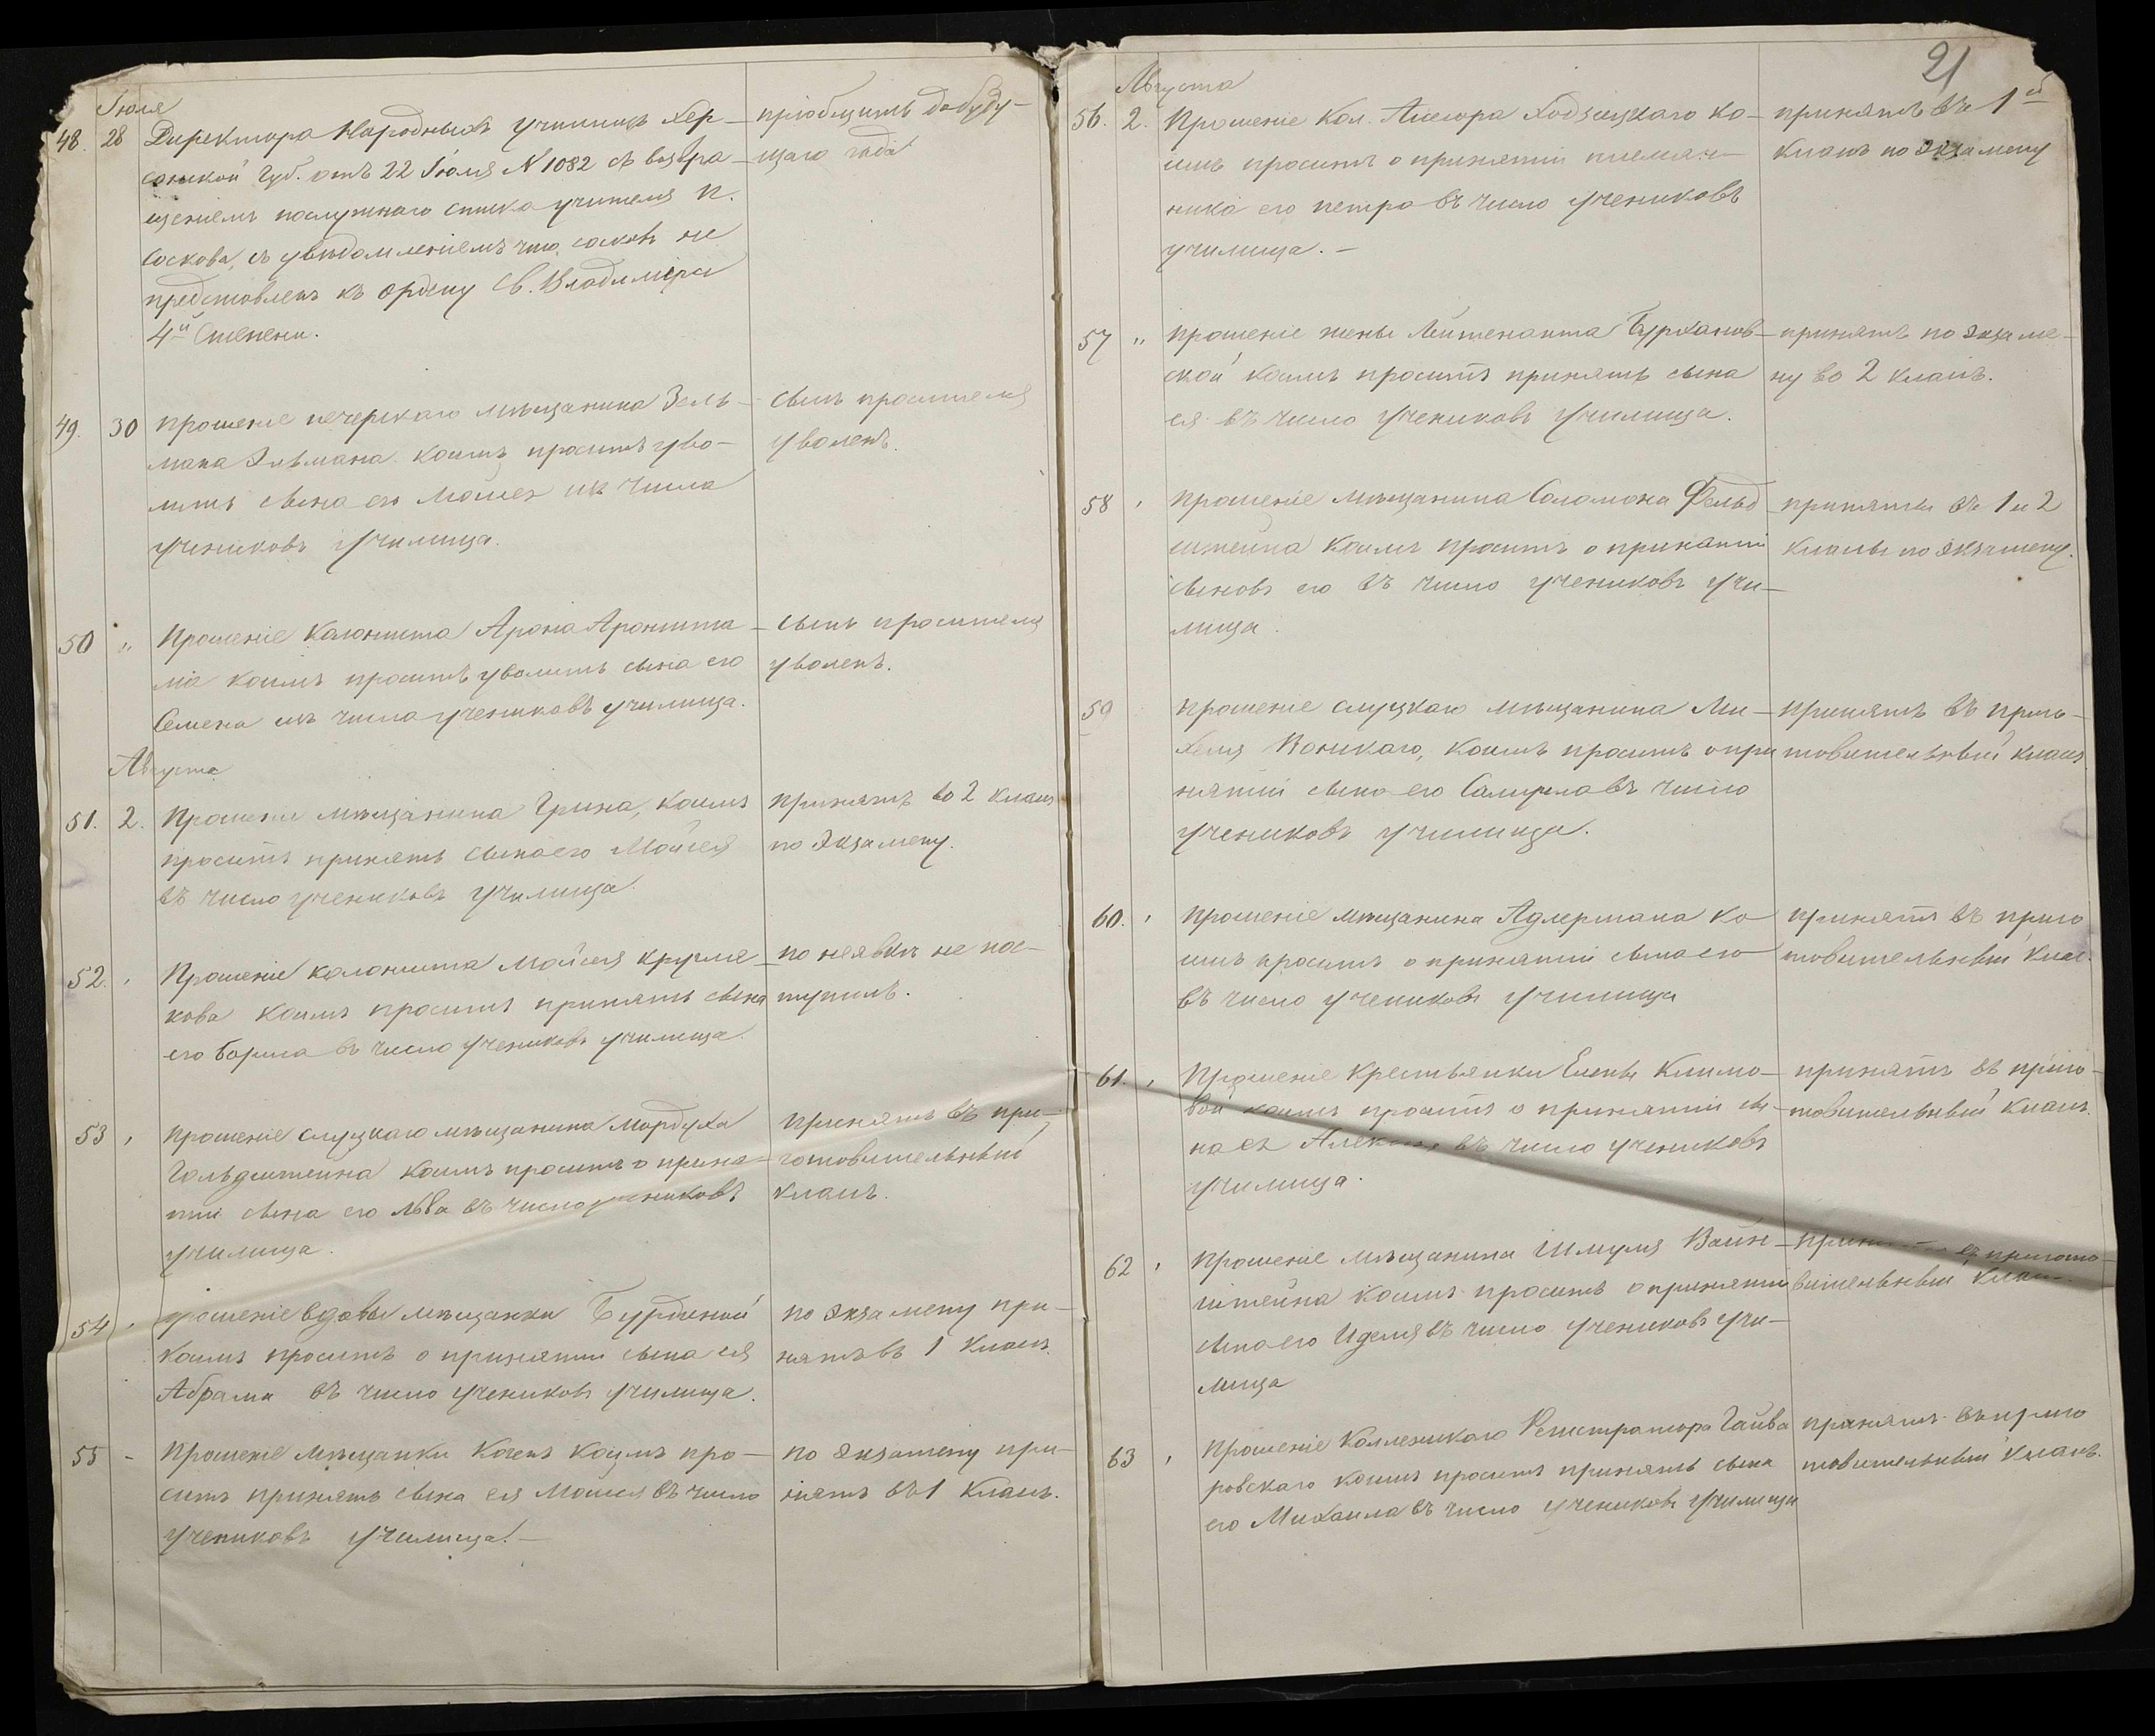 Іюля
48. 28 Директора Народныхъ училищъ Хер-
сонской Губ. отъ 22 Іюля N 1082 съ возвра-
щеніемъ послужнаго списка учителя П.
Соскова, съ увѣдомленіемъ что Сосковъ не
представленъ къ ордену Св. Владиміра
4й Степени.
пріобщить до буду-
щаго года
49. 30 Прошеніе мѣщанина Зель-
мана Эльмана коимъ проситъ уво-
лить сына его Мойсея изъ числа
учениковъ училища.
сынъ просителя
уволенъ.
50 " Прошеніе Колониста Арона
коимъ проситъ уволить сына его
Семена изъ числа учениковъ училища.
сынъ просителя
уволенъ.
Августа
51. 2. Прошеніе мѣщанина Грина, коимъ
проситъ принять сына его Мойсея
въ число учениковъ училища.
принятъ во 2 классъ
по экзамену.
52. Прошеніе колониста Мойсея Кругля-
кова коимъ проситъ принять сына
его Бориса въ число учениковъ училища.
по неявкѣ не пос-
тупилъ.
53 Прошеніе слуцкаго мѣщанина Мордуха
Гольдштейна коимъ проситъ о приня-
тіи сына его Льва въ число учениковъ
училища.
Принятъ въ при-
готовительный
классъ.
54 Прошеніе вдовы мѣщанки Бурдиной
коимъ проситъ о принятіи сына ея
Абрама въ число учениковъ училища.
по экзамену при-
нятъ въ 1 классъ.
55 - Прошеніе Мѣщанки Когенъ коимъ про-
ситъ принять сына ея Мойсея въ число
учениковъ училища. -
по экзамену при-
нятъ въ 1 классъ.
21
Августа
56. 2. Прошеніе Кол. Асесора Ходзицкаго ко-
имъ проситъ о принятіи племян-
ника его Петра въ число учениковъ
училища. -
принятъ въ 1й
классъ по экзамену
57 " Прошеніе жены Лейтенанта Бурханов-
ской коимъ проситъ принять сына
ея въ число учениковъ училища.
принятъ по экзаме-
ну во 2 классъ.
58 Прошеніе мѣщанина Соломона Фельд
штейна коимъ проситъ о принятіи
сыновъ его въ число учениковъ учи-
лища.
приняты въ 1 и 2
классы по экзамену.
59 Прошеніе слуцкаго мѣщанина Ми-
хеля коимъ проситъ о при
нятіи сына его Самуила въ число
учениковъ училища.
принятъ въ приго-
товительный классъ
60. Прошеніе мѣщанина Адлермана ко
имъ проситъ о принятіи сына его
въ число учениковъ училища
принятъ въ приго
товительный клас.
61. Прошеніе Крестьянки Елены Климо-
вой коимъ проситъ о принятіи сы-
на ея въ число учениковъ
училища.
принятъ въ приго-
товительный классъ.
62 Прошеніе мѣщанина Шмуля Вайн-
штейна коимъ проситъ о принятіи
сына его Иделя въ число учениковъ учи-
лища
въ пригото-
вительный классъ
63 Прошеніе Коллежскаго Регистратора Гайва
ровскаго коимъ проситъ принять сына
его Михаила въ число учениковъ училища
принятъ въ приго
товительный классъ.